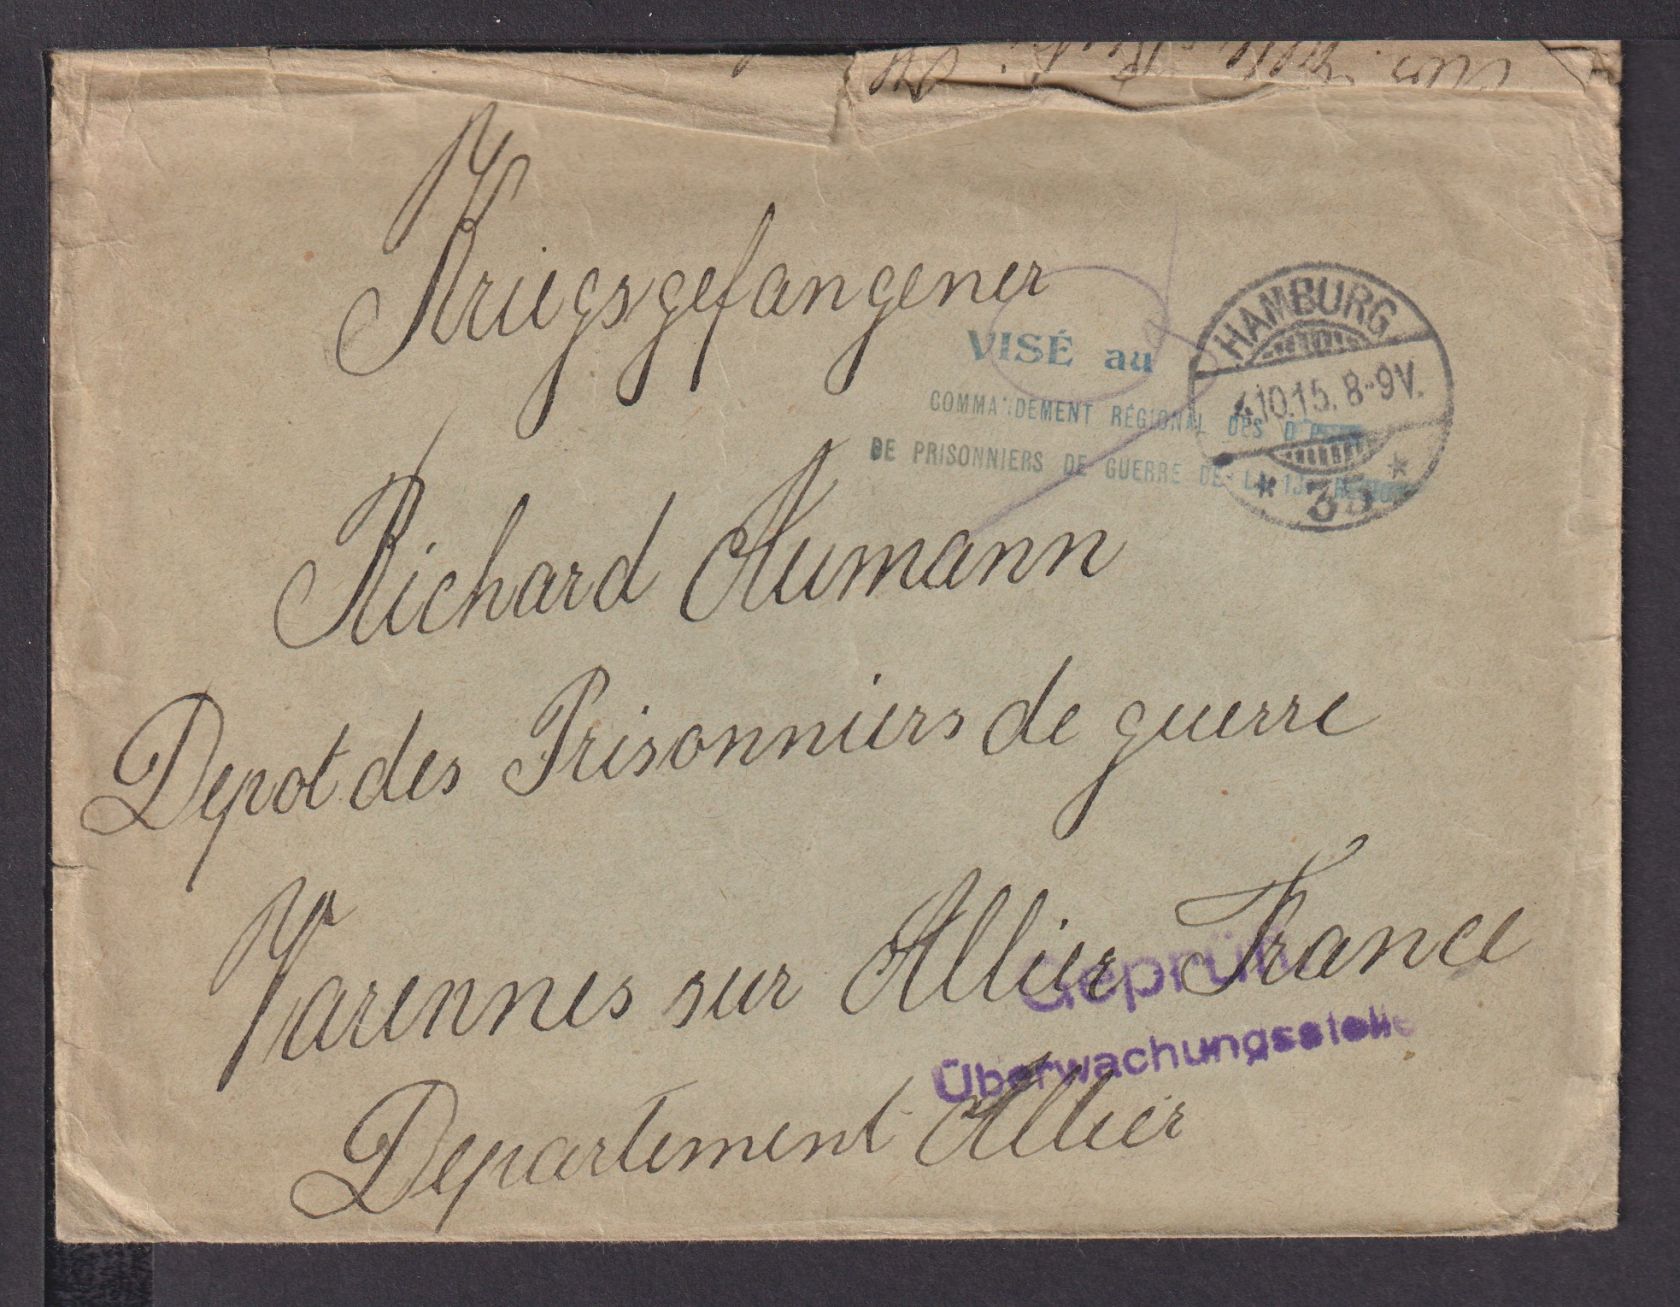 Kriegsgefangener
VISÉ au
COMMANDEMENT RÉGIONAL DES
DE PRISONNIERS DE GUERRE DE LA 13
HAMBURG
4.10.15. 8-9V.
* 35 *
Richard Aumann
Depot des Prisonniers de guerre
Varennes sur Allier France
Geprüft
Überwachungsstelle
Departement Allier